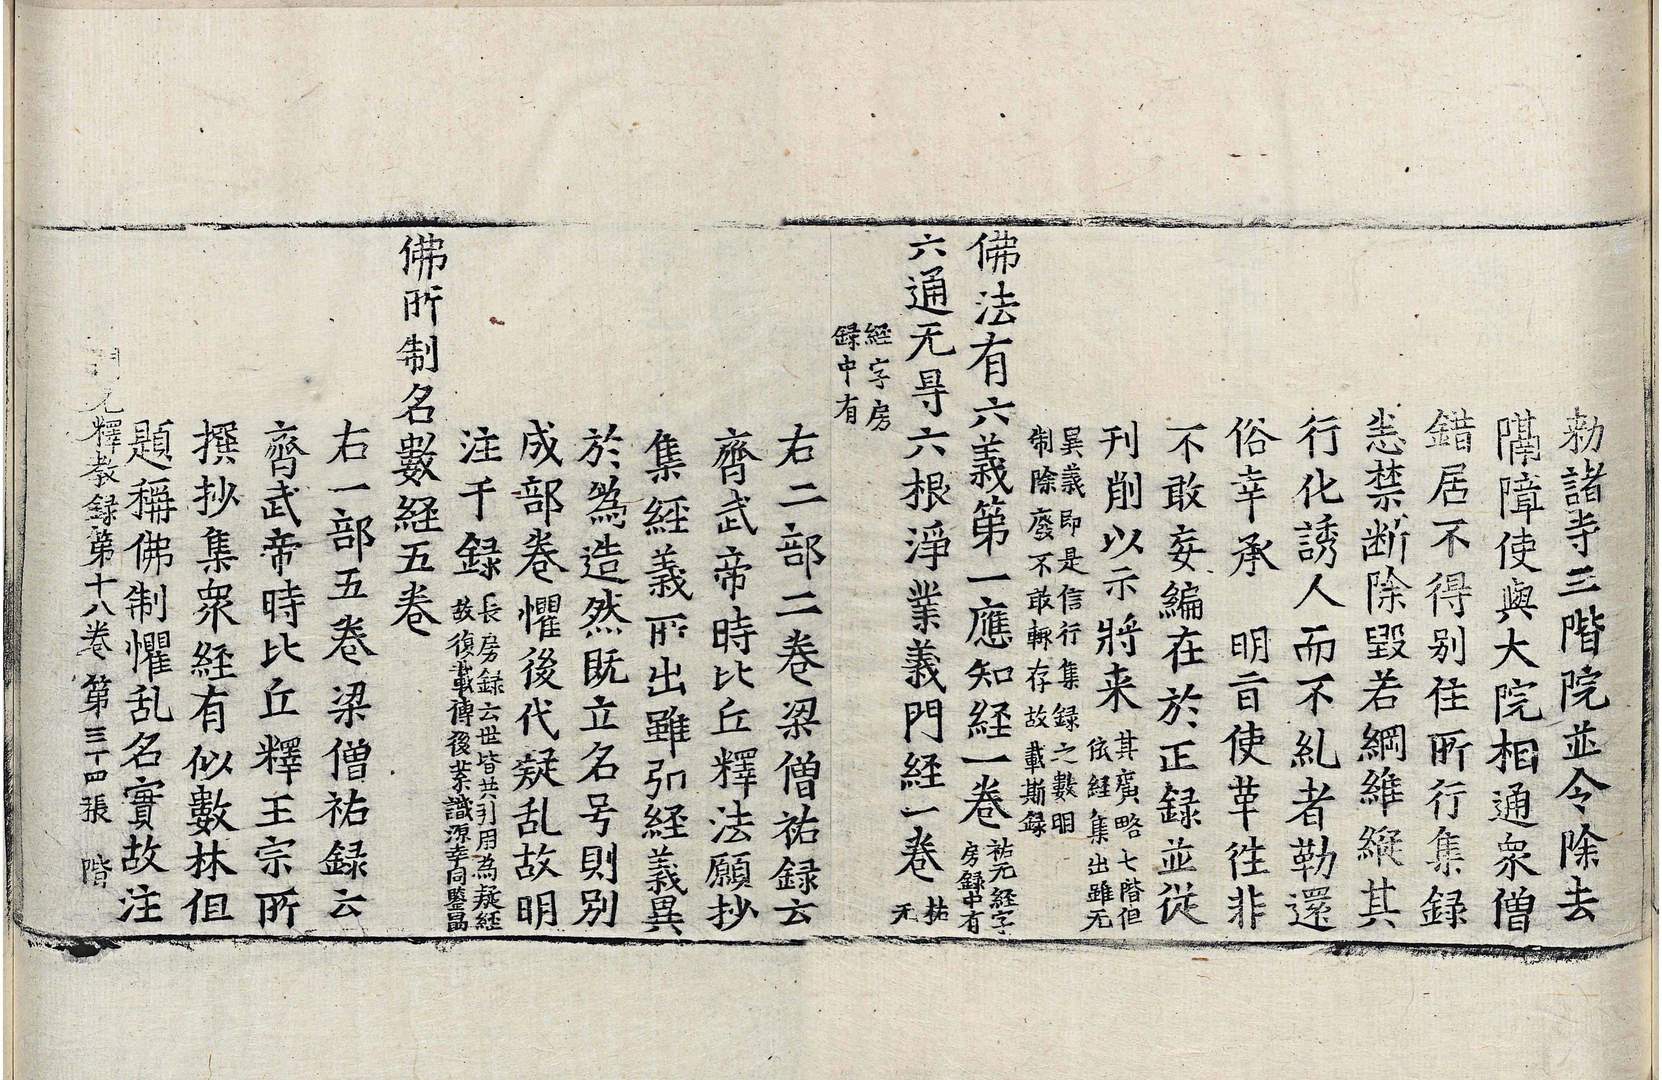 勑諸寺三階院並令除去
隔障使與大院相通衆僧
錯居不得别住所行集録
悉禁断除毀若綱維縱其
行化誘人而不糺者勒還
俗幸承　明旨使革往非
不敢妄編在於正録並從
刊削以示將来其廣略七階但
依經集出雖无
異義即是信行集録之數明
制除廢不敢輙存故載斯録
佛法有六義第一應知経一卷祐无經字
房録中有
六通无㝵六根淨業義門経一卷祐
无
經字房
録中有
右二部二卷梁僧祐録云
齊武帝時比丘釋法願抄
集経義所出雖弘経義異
於為造然既立名号則别
成部卷懼後代疑乱故明
注于録長房録云世皆共列用為疑經
故復載傳後葉識源幸同鑒昌
佛所制名數経五卷
右一部五卷梁僧祐録云
齊武帝時比丘釋王宗所
撰抄集衆経有似數林但
題稱佛制懼乱名實故注
開元釋教録第十八卷　第三十四張　階